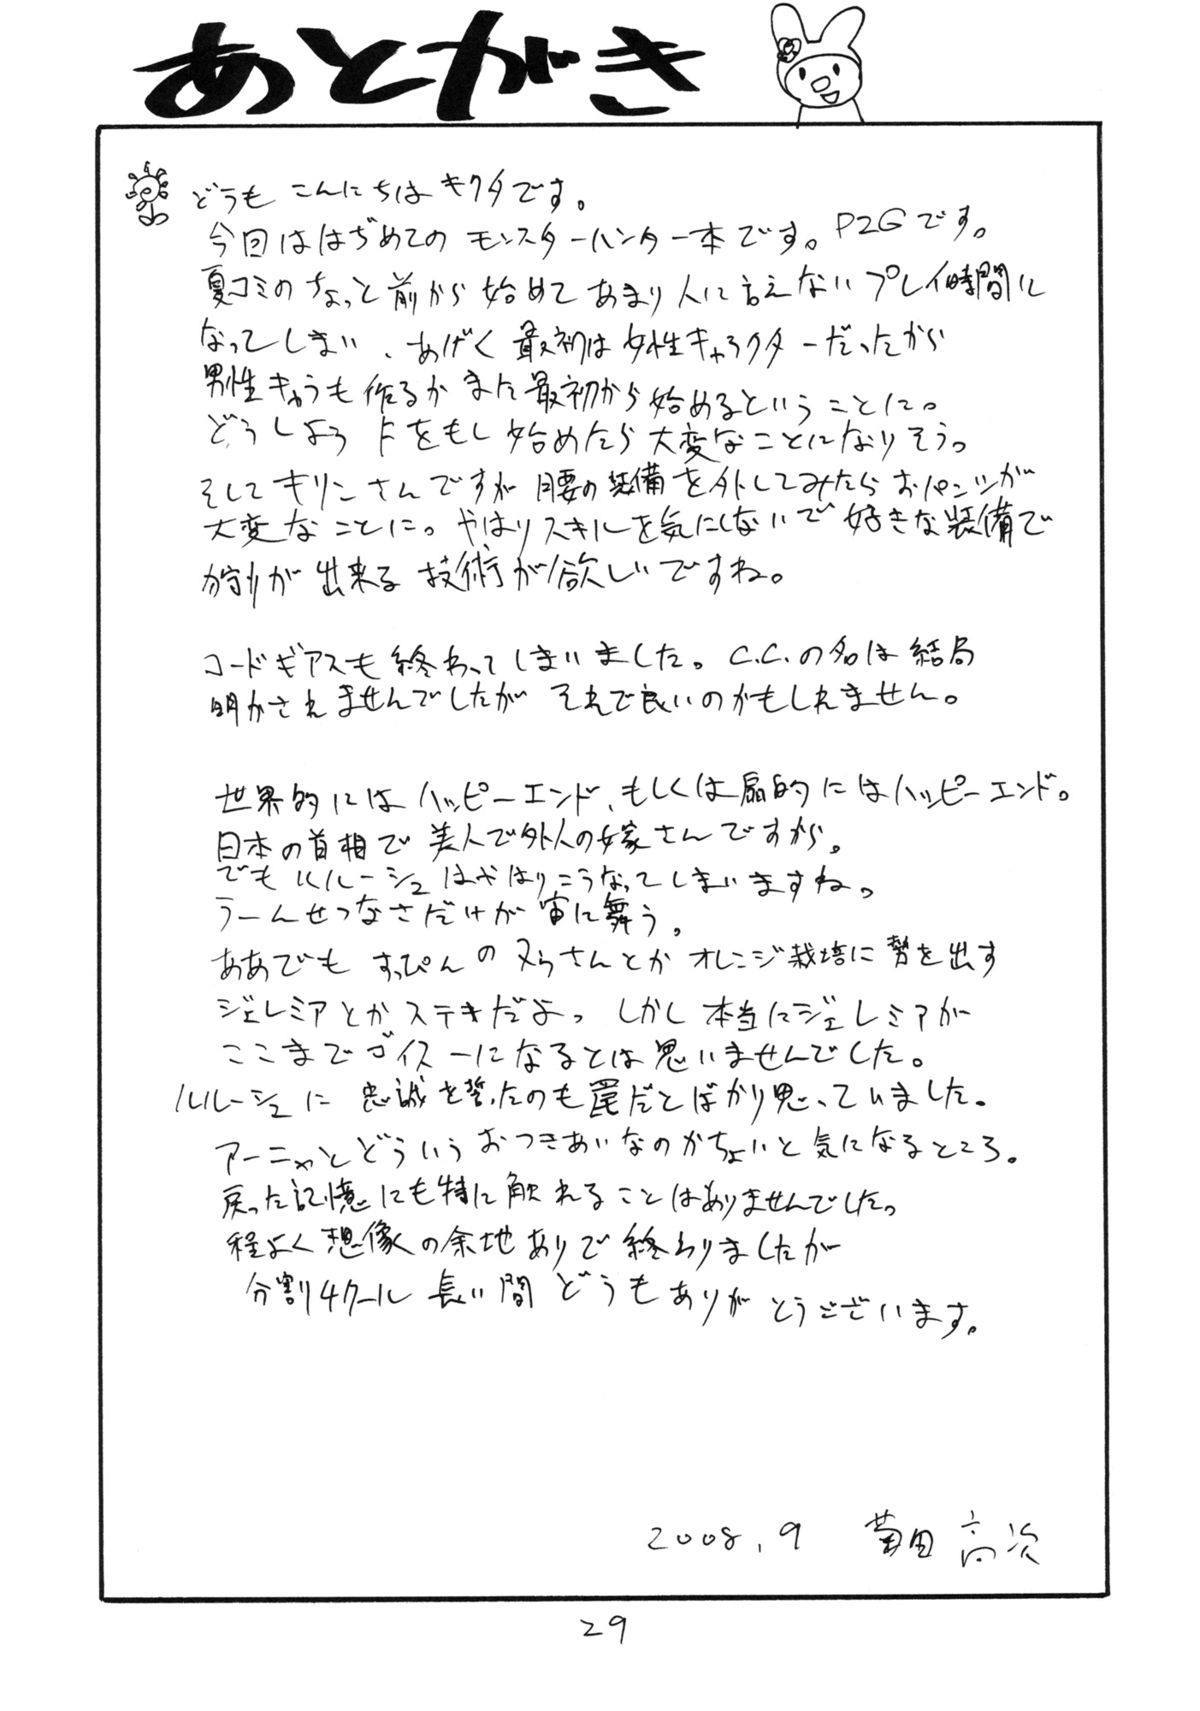 あとがき
どうも こんにちは キクタです。
今回ははぢめての モンスターハンター本です。P2Gです。
夏コミのちょっと前から始めて あまり人に言えない プレイ時間に
なってしまい、あげく 最初は女性キャラクターだったから
男性キャラも作るか また最初から始めるということに。
どうしよう Fをもし始めたら大変なことになりそうっ
そして キリンさんですが 腰の装備を外してみたら おパンツが
大変なことに。やはりスキルを気にしないで好きな装備で
狩りが出来る技術が欲しいですね。
コードギアスも終わってしまいました。C.C.の名は結局
明かされませんでしたが それで良いのかもしれません。
世界的にはハッピーエンド、もしくは扇的にはハッピーエンド。
日本の首相で美人で外人の嫁さんですから。
でもルルーシュはやはりこうなってしまいますね。
うーんせつなさだけが宙に舞う。
ああでも すっぴんの ヌゥさんとか オレンジ栽培に勢を出す
ジェレミアとかステキだよっ しかし本当にジェレミアが
ここまで ゴイスーになるとは思いませんでした。
ルルーシュに 忠誠を誓ったのも罠だとばかり思っていました。
アーニャとどういうおつきあいなのかちょいと気になるところ。
戻った記憶にも特に触れることはありませんでしたっ
程よく想像の余地ありで終わりましたが
分割4クール 長い間 どうもありがとうございます。
2008.9 菊田高次
29